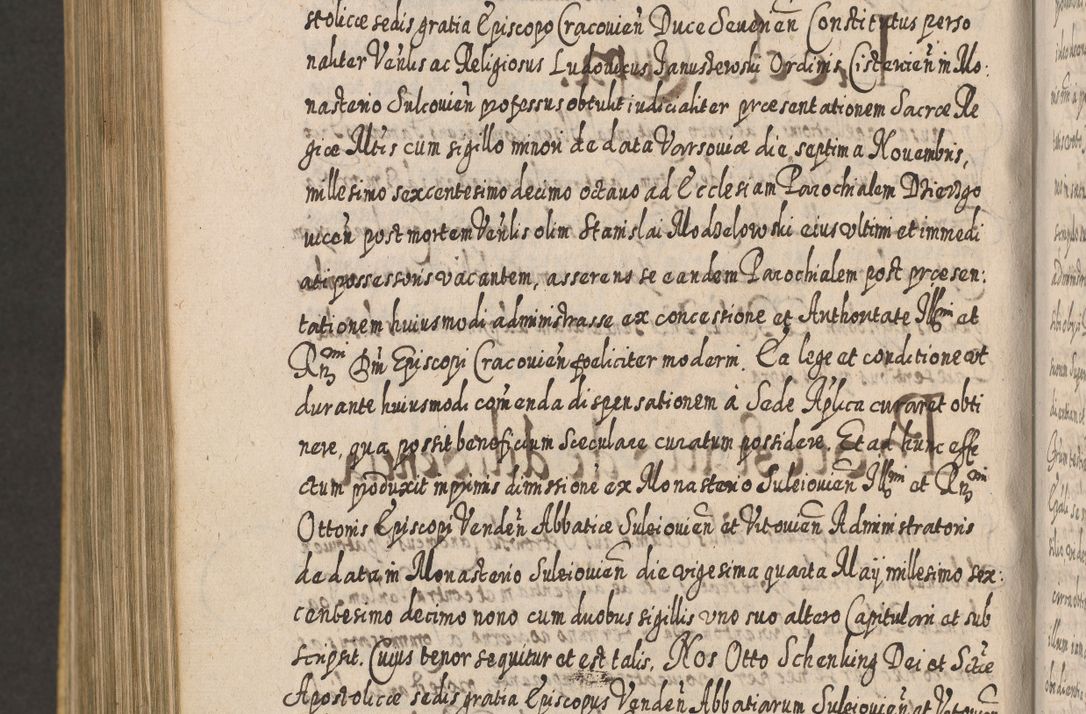 stolicæ sedis gratia Episcopo Cracovień Duce Severień Constitutus perso
naliter Veńlis ac Religiosus Ludovicus Januszewski Ordinis Cistercień in Mo:
nasterio Sulcovień professus obtulit iudicialiter præsentationem Sacræ Re
giæ Mltis cum sigillo minori de data Varsoviæ die septima Novembris,
millesimo sexcentesimo decimo octavo ad Ecclesiam Parochialem Dzierzgo
viceń post mortem Veńlis olim Stanislai Modzelowski eius ultimi et immedi
ati possessoris vacantem, asserens se eandem Parochialem post præsen:
tationem huiusmodi administrasse ex concessione et Authoritate Illmi et
Rmi Dni Episcopi Cracovień fœliciter moderni. Ea lege et conditione ut
durante huiusmodi comenda dispensationem à Sede Aplica curaret obti
nere, qua possit beneficium sæculare curatum possidere. Et ad hunc effe
ctum produxit inprimis dimissione ex Monasterio Suleiovień Illmi et Rmi
Ottonis Episcopi Vendeń Abbatiæ Suleiovień et Vitovień Administratoris
de data in Monasterio Suleiovień die vigesima quarta Maÿ millesimo sex:
centesimo decimo nono cum duobus sigillis uno suo altero Capitulari et sub
scripsit. Cuius tenor sequitur et est talis. Nos Otto Schenking Dei et Sctæ
Apostolicæ sedis gratia Episcopus Vendeń Abbatiarum Suleiovień et Vitovień